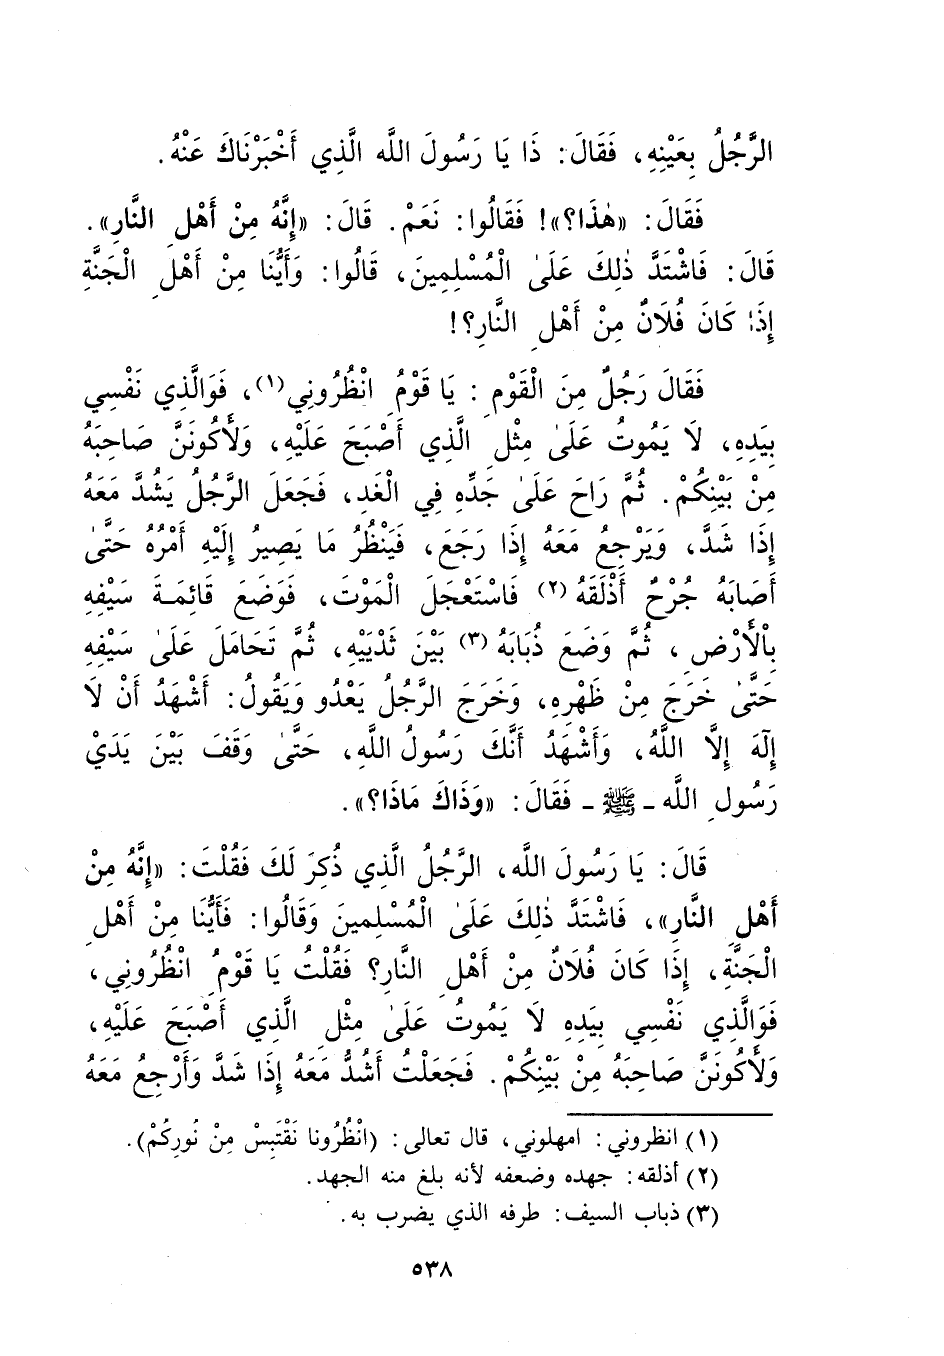 الرَّجُلُ بِعَيْنِهِ، فَقَالَ: ذَا يَا رَسُولَ اللَّه الَّذِي أَخْبَرْنَاكَ عَنْهُ.
فَقَالَ: «هٰذَا؟»! فَقَالُوا: نَعَمْ. قَالَ: «إِنَّهُ مِنْ أَهْلِ النَّارِ».
قَالَ: فَاشْتَدَّ ذٰلِكَ عَلَىٰ الْمُسْلِمِينَ، قَالُوا: وَأَيُّنَا مِنْ أَهْلِ الْجَنَّةِ
إِذَا كَانَ فُلَانٌ مِنْ أَهْلِ النَّارِ؟!
فَقَالَ رَجُلٌ مِنَ الْقَوْمِ: يَا قَوْمُ انْظُرُونِي(١)، فَوَالَّذِي نَفْسِي
بِيَدِهِ، لَا يَمُوتُ عَلَىٰ مِثْلِ الَّذِي أَصْبَحَ عَلَيْهِ، وَلَأَكُونَنَّ صَاحِبَهُ
مِنْ بَيْنِكُمْ. ثُمَّ رَاحَ عَلَىٰ جَدِّهِ فِي الْغَدِ، فَجَعَلَ الرَّجُلُ يَشُدَّ مَعَهُ
إِذَا شَدَّ، وَيَرْجِعُ مَعَهُ إِذَا رَجَعَ، فَيَنْظُرُ مَا يَصِيرُ إِلَيْهِ أَمْرُهُ حَتَّىٰ
أَصَابَهُ جُرْحٌ أَذْلَقَهُ(٢) فَاسْتَعْجَلَ الْمَوْتَ، فَوَضَعَ قَائِمَةَ سَيْفِهِ
بِالْأَرْضِ، ثُمَّ وَضَعَ ذُبَابَهُ(٣) بَيْنَ ثَدْيَيْهِ، ثُمَّ تَحَامَلَ عَلَىٰ سَيْفِهِ
حَتَّىٰ خَرَجَ مِنْ ظَهْرِهِ، وَخَرَجَ الرَّجُلُ يَعْدُو وَيَقُولُ: أَشْهَدُ أَنْ لَا
إِلَهَ إِلَّا اللَّهُ، وَأَشْهَدُ أَنَّكَ رَسُولُ اللَّهِ، حَتَّىٰ وَقَفَ بَيْنَ يَدَيْ
رَسُولِ اللَّه ـ ﷺ ـ فَقَالَ: «وَذَاكَ مَاذَا؟».
قَالَ: يَا رَسُولَ اللَّه، الرَّجُلُ الَّذِي ذُكِرَ لَكَ فَقُلْتَ: «إِنَّهُ مِنْ
أَهْلِ النَّارِ»، فَاشْتَدَّ ذٰلِكَ عَلَىٰ الْمُسْلِمِينَ وَقَالُوا: فَأَيُّنَا مِنْ أَهْلِ
الْجَنَّةِ، إِذَا كَانَ فُلَانٌ مِنْ أَهْلِ النَّارِ؟ فَقُلْتُ يَا قَوْمُ انْظُرُونِي،
فَوَالَّذِي نَفْسِي بِيَدِهِ لَا يَمُوتُ عَلَىٰ مِثْلِ الَّذِي أَصْبَحَ عَلَيْهِ،
وَلَأَكُونَنَّ صَاحِبَهُ مِنْ بَيْنِكُمْ. فَجَعَلْتُ أَشُدُّ مَعَهُ إِذَا شَدَّ وَأَرْجِعُ مَعَهُ
(١) انظروني: امهلوني، قال تعالى: (انْظُرُونا نَقْتَبِسْ مِنْ نُورِكُمْ).
(٢) أذلقه: جهده وضعفه لأنه بلغ منه الجهد.
(٣) ذباب السيف: طرفه الذي يضرب به.
٥٣٨